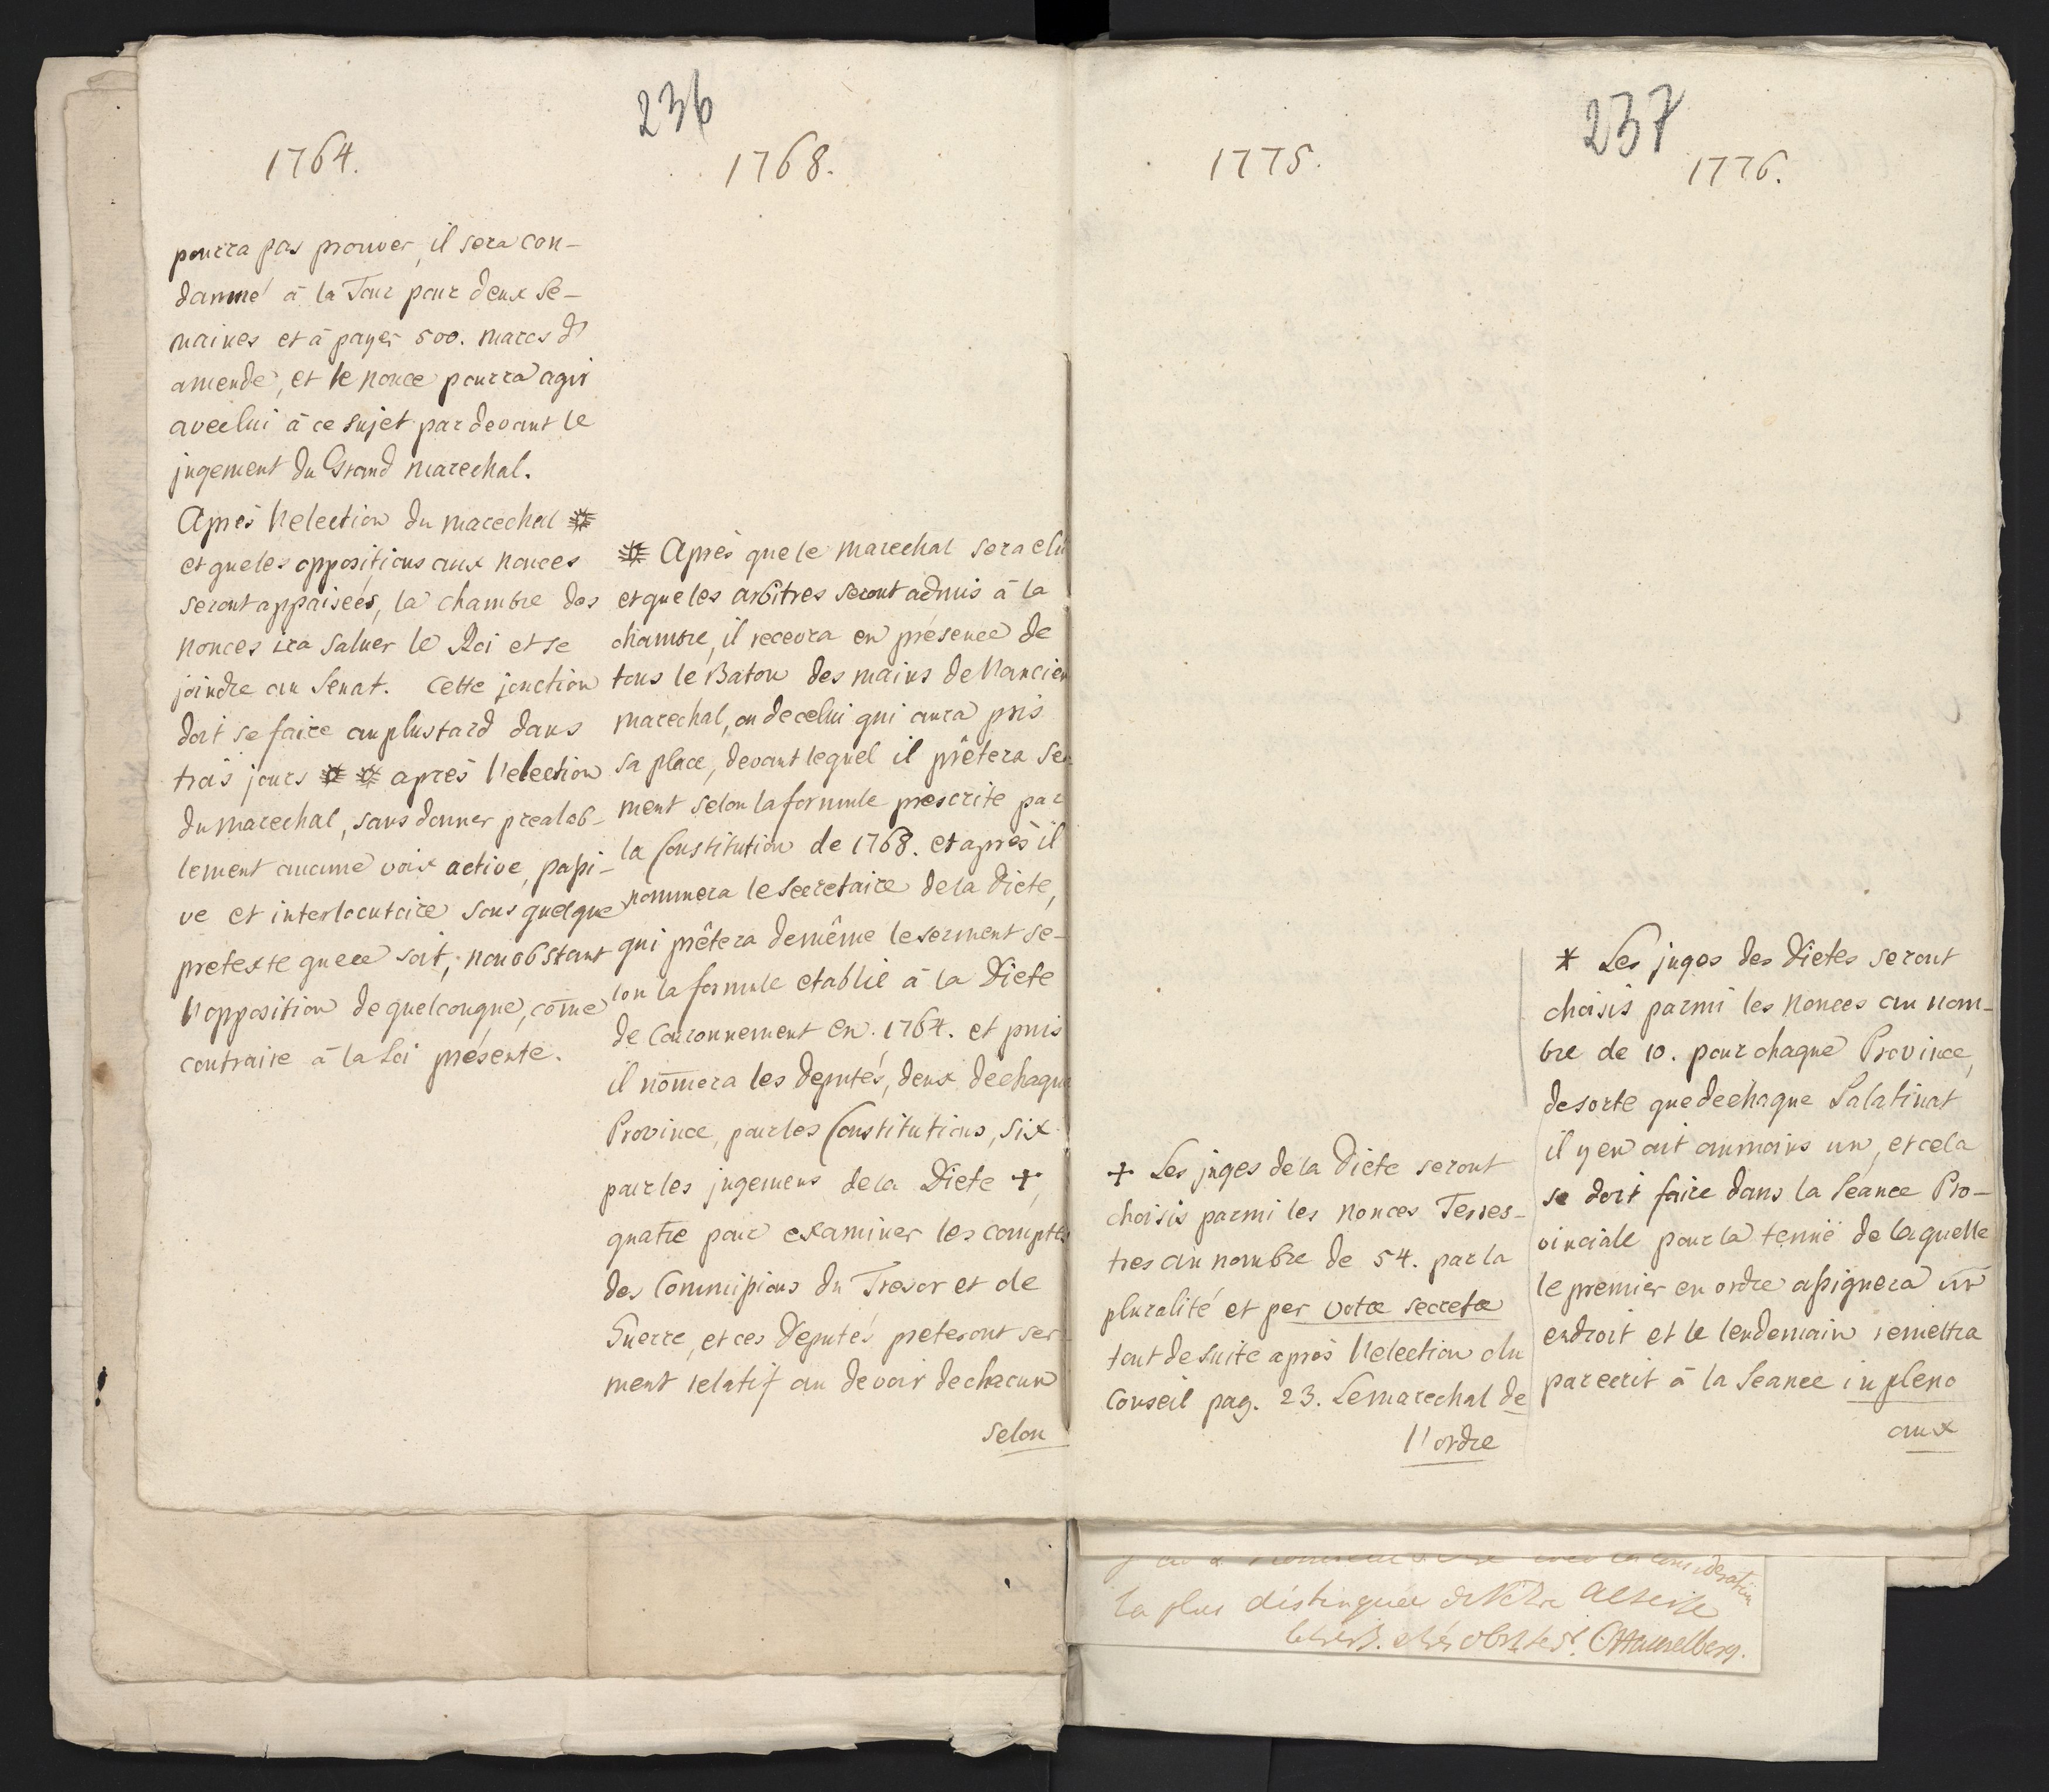 236
1764.
pourra pas prouver, il sera con-
damné à la Tour pour deux se-
maines et à payer 500. marcs d'
amende, et le nonce pourra agir
avec lui à ce sujet pardevant le
jugement du Grand marechal.
Après l'election du marechal ※
et que les oppositions aux nonces
seront appaisées, la chambre des
nonces ira saluer le Roi et se
joindre au Senat. Cette jonction
doit se faire au plustard dans
trois jours ※ ※ après l'election
du marechal, sans donner prealab-
lement aucune voix active, passi-
ve et interlocutoire sous quelque
pretexte que ce soit, nonobstant
l'opposition de quelconque, come
contraire à la Loi présente.
1768.
※ Après que le marechal sera elu
et que les arbitres seront admis à la
chambre, il recevra en présence de
tous le Baton des mains de l'ancien
marechal, ou de celui qui aura pris
sa place, devant lequel il prêtera ser-
ment selon la formule prescrite par
la Constitution de 1768. et après il
nommera le Secretaire de la Diete,
qui prêtera de même le serment se-
lon la formule etablie à la Diete
de Couronnement en 1764. et puis
il nomera les deputés, deux de chaque
Province, pour les Constitutions, six
pour les jugemens de la Diete +,
quatre pour examiner les comptes
des Commissions du Tresor et de
Guerre, et ces Deputés preteront ser-
ment relatif au devoir de chacun
selon
237
1775.
+ Les juges de la Diete seront
choisis parmi les nonces Terres-
tres au nombre de 54. par la
pluralité et per vota secreta
tout de suite après l'election du
Conseil pag. 23. Le marechal de
l'ordre
1776.
* Les juges des Dietes seront
choisis parmi les nonces au nom-
bre de 10. pour chaque Province,
de sorte que de chaque Palatinat
il y en ait aumoins un, et cela
se doit faire dans la Seance Pro-
vinciale pour la tenuë de laquelle
le premier en ordre assignera un
endroit et le lendemain remettra
par ecrit à la Seance in pleno
aux
consideration
la plus distinguée de Votre Altesse